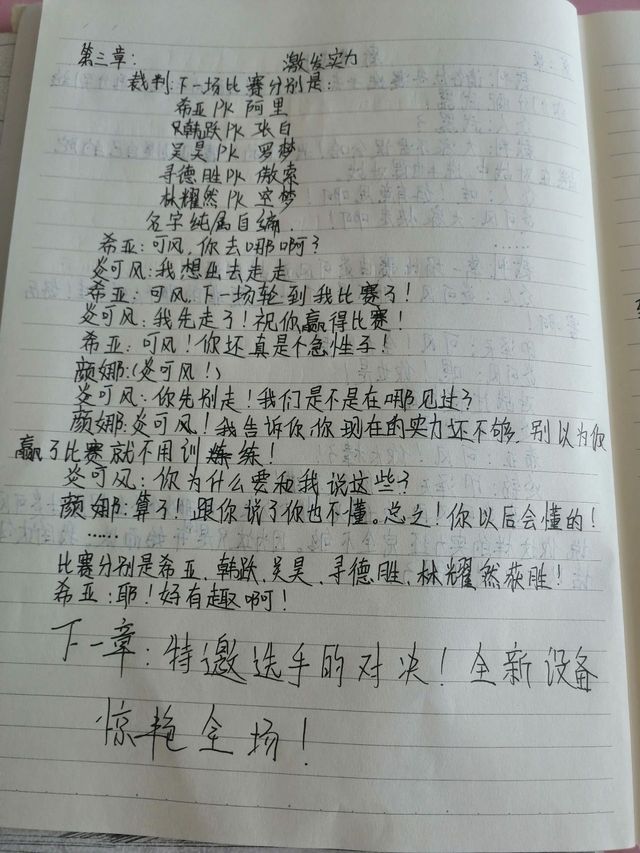 第三章： 激发实力
裁判：下一场比赛分别是：
希亚PK 阿里
韩跃PK 张白
吴昊PK 罗梦
寻德胜PK 傲索
林耀然PK 空梦
名字纯属自编.
希亚：可风，你去哪啊？
炎可风：我想出去走走
希亚：可风，下一场轮到我比赛了！
炎可风：我先走了！祝你赢得比赛！
希亚：可风！你还真是个急性子！
颜娜：（炎可风！）
炎可风：你先别走！我们是不是在哪见过？
颜娜：炎可风！我告诉你，你现在的实力还不够，别以为你
赢了比赛就不用训练！
炎可风：你为什么要和我说这些？
颜娜：算了！跟你说了你也不懂。总之！你以后会懂的！
……
比赛分别是希亚、韩跃、吴昊、寻德胜、林耀然获胜！
希亚：耶！好有趣啊！
下一章：特邀选手的对决！全新设备
惊艳全场！